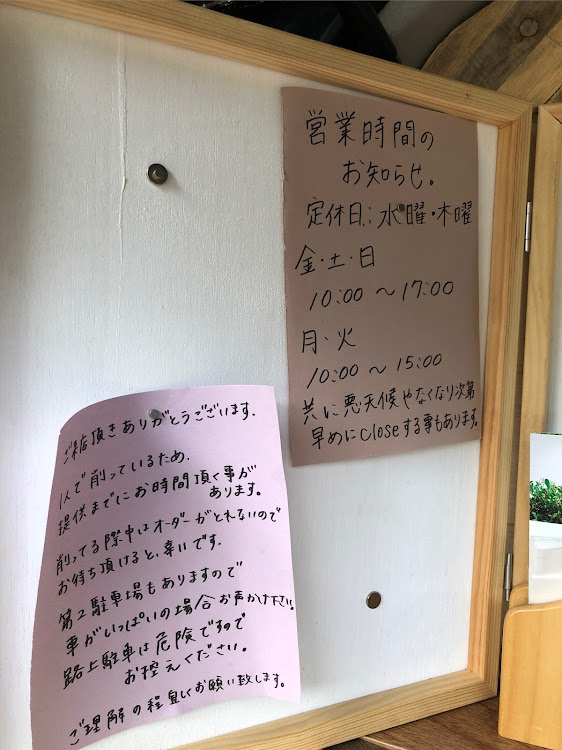 営業時間の
お知らせ。
定休日：水曜・木曜
金・土・日
10:00〜17:00
月・火
10:00〜15:00
共に悪天候やなくなり次第
早めにcloseする事もあります。
ご来店頂きありがとうございます。
1人で削っているため、
提供までにお時間頂く事が
あります。
削ってる際中はオーダーがとれないので
お待ち頂けると、幸いです。
第2駐車場もありますので
車がいっぱいの場合お声かけ下さい。
路上駐車は危険ですので
お控えください。
ご理解の程宜しくお願い致します。